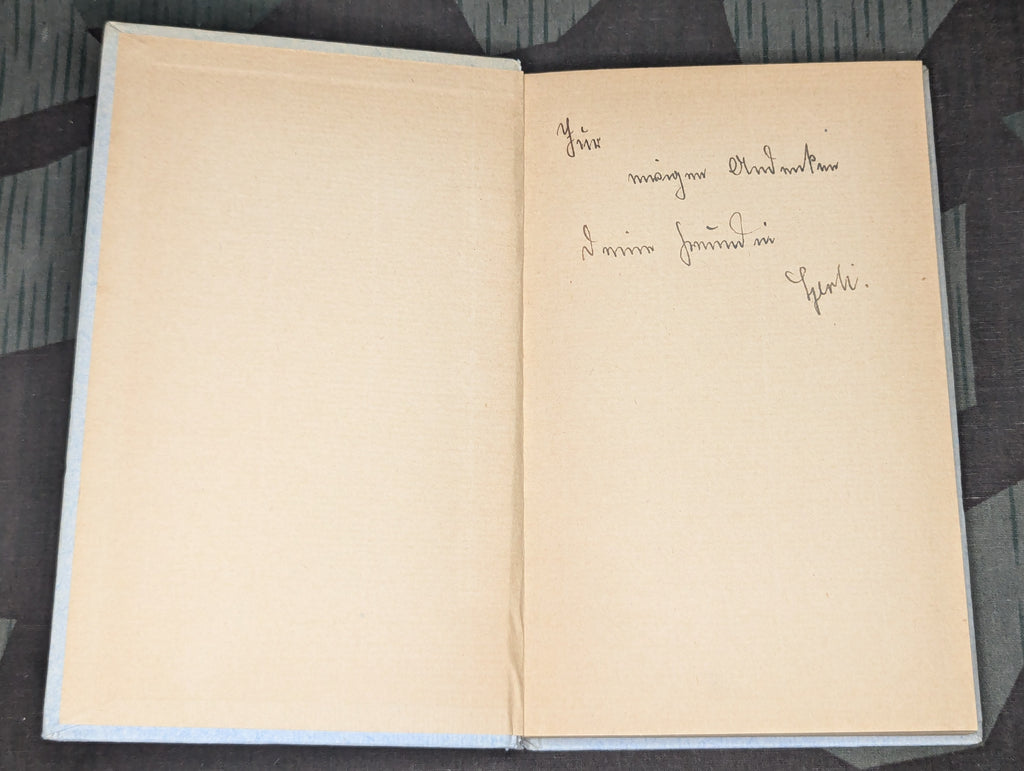 Zur
ewigen Andenken
Deine Freundin
Gerti.